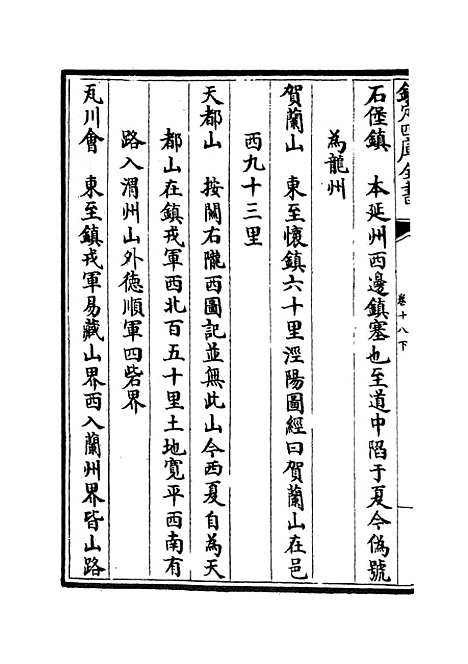 欽定四庫全書
卷十八下
石堡鎮　本延州西邊鎮塞也至道中陷于夏今偽號
為龍州
賀蘭山　東至懷鎮六十里涇陽圖經曰賀蘭山在邑
西九十三里
天都山　按關右隴西圖記並無此山今西夏自為天
都山在鎮戎軍西北百五十里土地寬平西南有
路入渭州山外德順軍四砦界
瓦川會　東至鎮戎軍易藏山界西入蘭州界皆山路